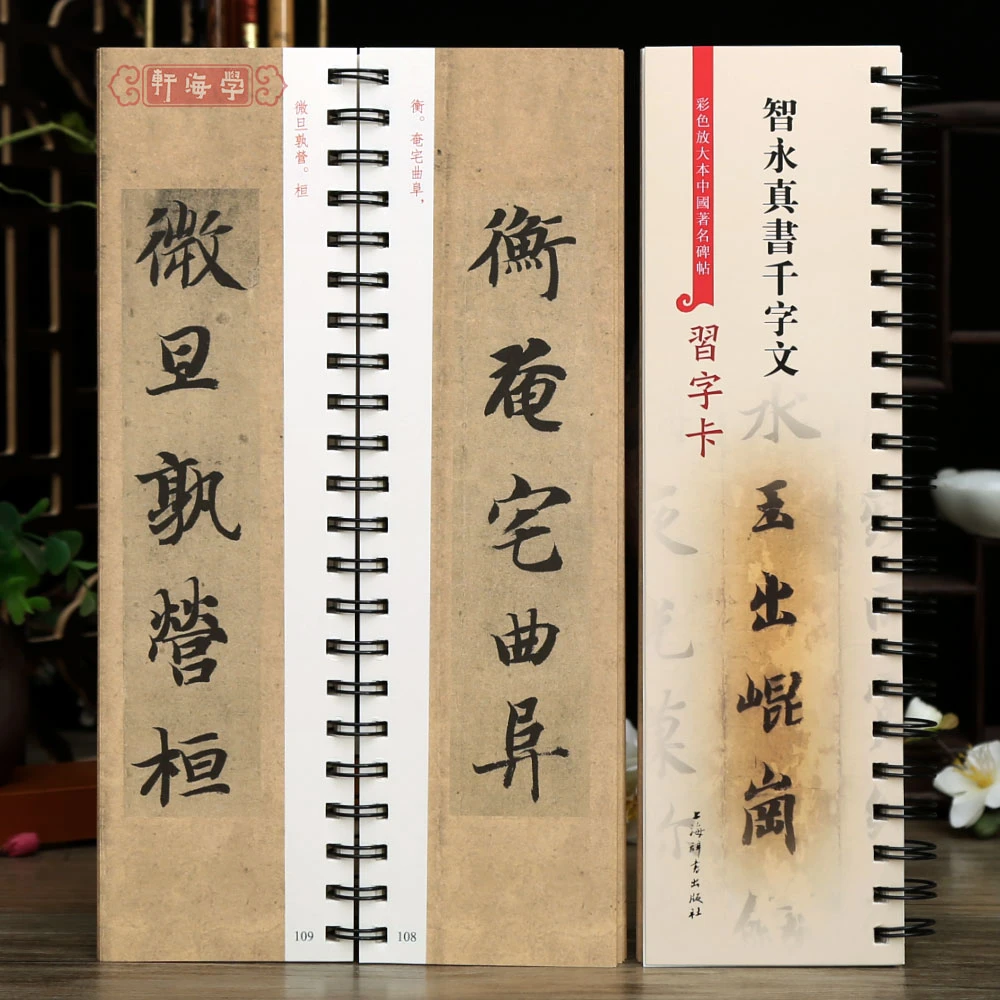 軒海學
衡。奄宅曲阜,
衡奄宅曲阜
108
微旦孰營。桓
微旦孰營桓
109
智永真書千字文
彩色放大本中國著名碑帖
習字卡
水
玉出崐崗
上海辭書出版社